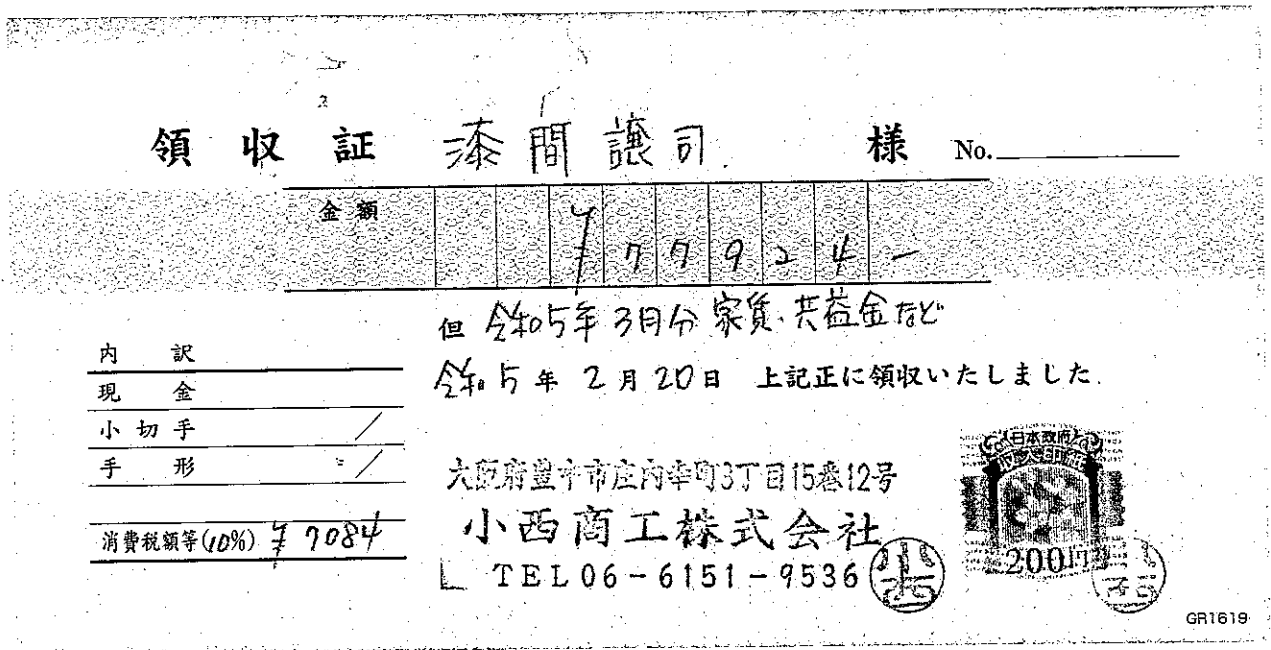 領収証 漆間譲司 様 No.
金額 ¥77924-
但 令和5年3月分 家賃、共益金など
令和5年2月20日 上記正に領収いたしました.
内訳
現金
小切手 /
手形 〃 /
消費税額等(10%) ¥7084
大阪府豊中市庄内幸町3丁目15番12号
小西商工株式会社
TEL06-6151-9536
日本政府
収入印紙
200円
GR1619